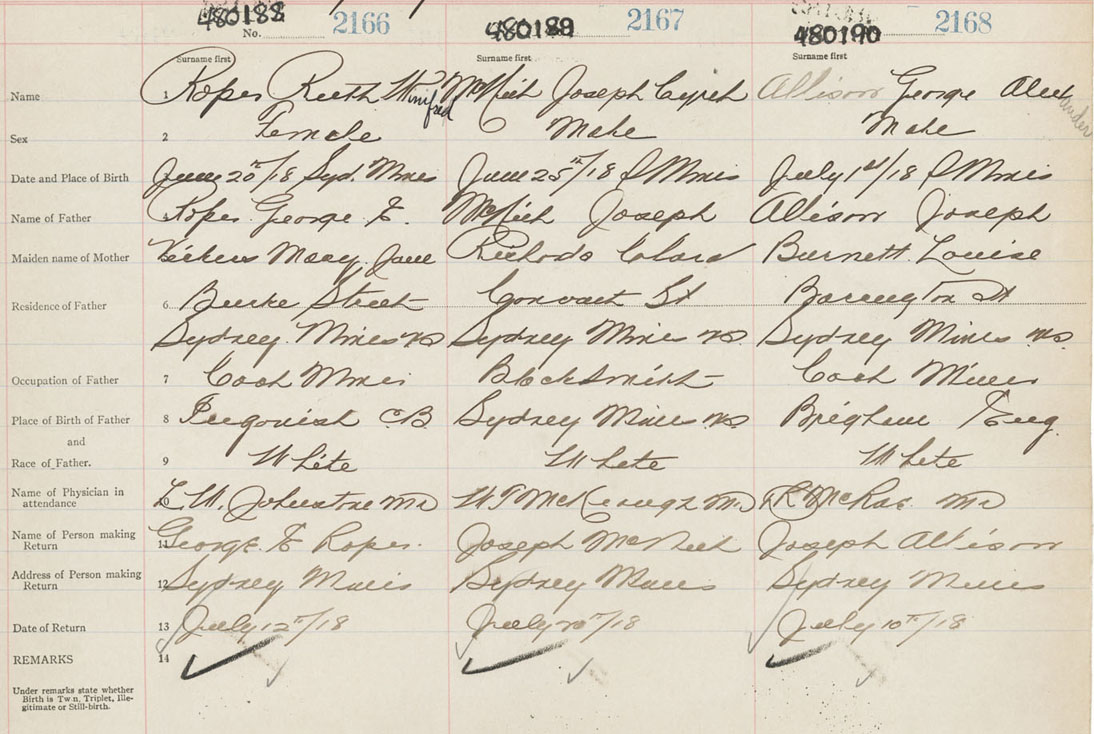 480188 2166 480189 2167 480190 2168
No.
Surname first Surname first Surname first
Name 1 Roper Ruth Winifred McNeil Joseph Cyril Allison George Alexander
Sex 2 Female Male Male
Date and Place of Birth June 20th/18 Syd. Mines June 25th/18 S Mines July 1st/18 S Mines
Name of Father Roper George E. McNeil Joseph Allison Joseph
Maiden name of Mother Mary Jane Clara Burnett Louise
Residence of Father 6 Burke Street Convent St Barrington St
Sydney Mines NS Sydney Mines NS Sydney Mines NS
Occupation of Father 7 Coal Miner Blacksmith Coal Miner
Place of Birth of Father 8 CB Sydney Mines NS Eng.
and
Race of Father. 9 White White White
Name of Physician in
attendance 10 L. W. Johnstone MD MD McRae MD
Name of Person making
Return 11 George E Roper. Joseph McNeil Joseph Allison
Address of Person making
Return 12 Sydney Mines Sydney Mines Sydney Mines
Date of Return 13 July 12th/18 July 20th/18 July 10th/18
REMARKS 14
Under remarks state whether
Birth is Twin, Triplet, Ille-
gitimate or Still-birth.